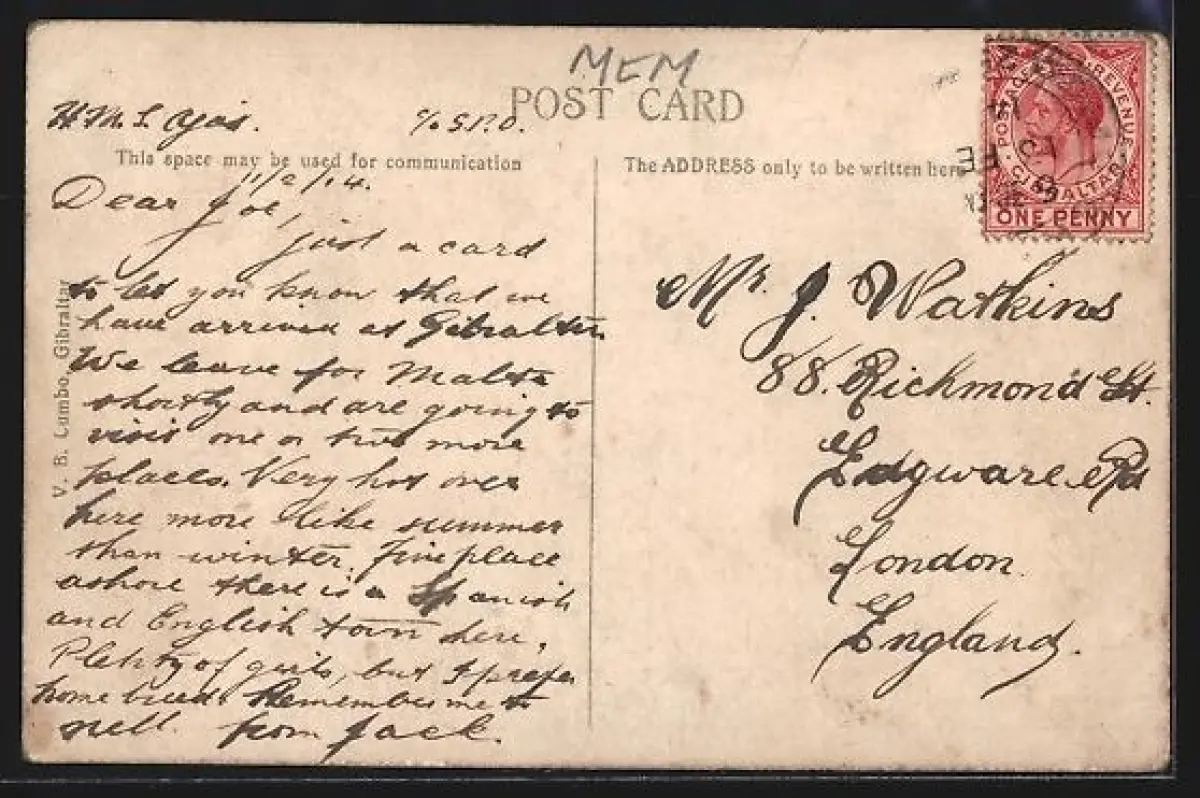 MEM
POST CARD
H.M.S. Ajax. c/o G.P.O.
This space may be used for communication
The ADDRESS only to be written here
11/2/14.
Dear Joe,
just a card
to let you know that we
have arrived at Gibraltar
We leave for Malta
shortly and are going to
visit one or two more
places. Very hot over
here more like summer
than winter. Fine place
ashore there is a Spanish
and English town here.
Plenty of girls, but I prefer
home bred. Remember me to
nell. from Jack.
V. B. Cumbo, Gibraltar
POSTAGE & REVENUE
GIBRALTAR
ONE PENNY
Mr. J. Watkins
88. Richmond St.
Edgware Rd
London.
England.